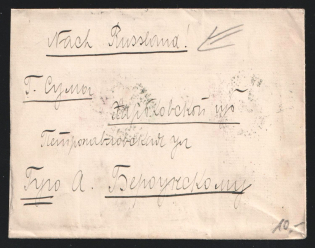 Nach Russland!
Г. Сумы
Харьковской губ
Петропавловская ул
А.
10.-